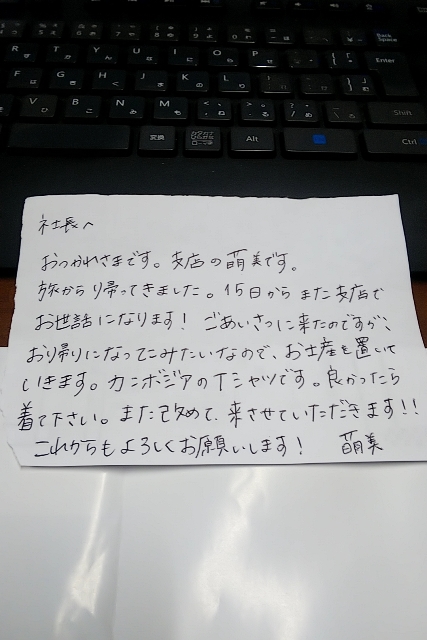 R T Y U I O P Back Space
F G H J K L Enter
V B N M Shift
変換 カタカナ ひらがな ローマ字 Alt Ctrl
社長へ
おつかれさまです。支店の萌美です。
旅から帰ってきました。15日からまた支店で
お世話になります！ごあいさつに来たのですが、
お帰りになってるみたいなので、お土産を置いて
いきます。カンボジアのTシャツです。良かったら
着て下さい。また改めて、来させていただきます!!
これからもよろしくお願いします！ 萌美